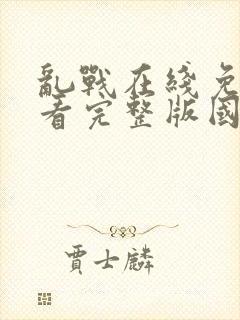 亂戰在綫免
看完整版國
賈士麟